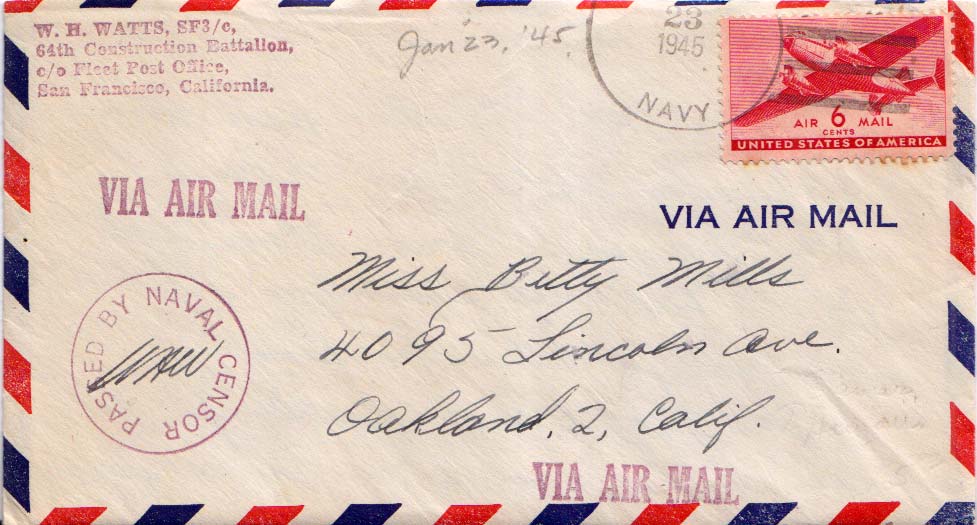 W. H. WATTS, SF3/c,
64th Construction Battalion,
c/o Fleet Post Office,
San Francisco, California.
Jan 23, '45.
23
1945
NAVY
AIR 6 MAIL
CENTS
UNITED STATES OF AMERICA
VIA AIR MAIL
VIA AIR MAIL
Miss Betty Mills
4095 Lincoln Ave.
Oakland, 2, Calif.
PASSED BY NAVAL CENSOR
VIA AIR MAIL